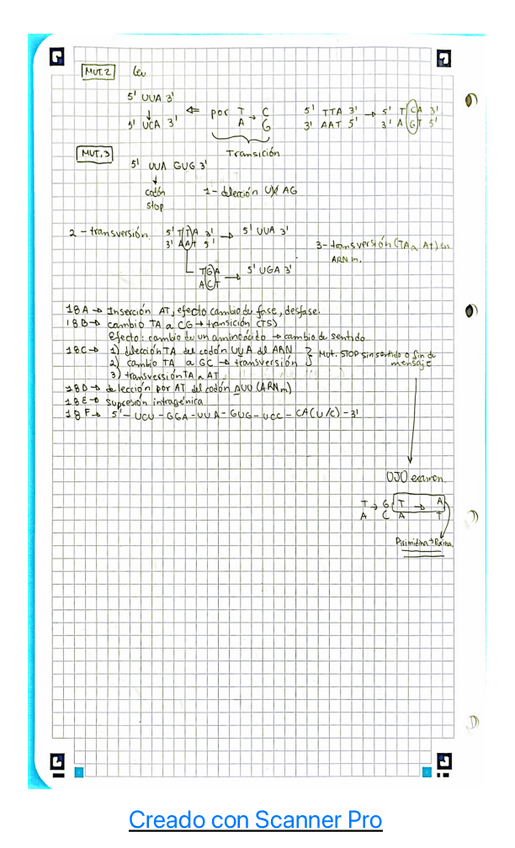 MUT.2 Leu
5' UUA 3'
5' UCA 3' ⇐ por T → C
A G
Transición
5' TTA 3' → 5' TCA 3'
3' AAT 5' 3' AGT 5'
MUT.3
5' UUA GUG 3'
codón stop
1 - delección UXAG
2 - transversión 5' TTA 3' → 5' UUA 3'
3' AAT 5'
TGA → 5' UGA 3'
ACT
3 - transversión (TA a AT) en
ARNm.
18A → Inserción AT, efecto cambio de fase, desfase.
18B → cambio TA a CG → transición (TS)
Efecto: cambio de un aminoácido → cambio de sentido
18C → 1) delección TA del codón UUA del ARN
2) cambio TA a GC → transversión
3) transversión TA a AT
Mut. STOP sin sentido o fin de
mensaje
18D → delección por AT del codón AUU (ARNm)
18E → Supresión intragénica
18F → 5' - UCU - GGA - UUA - GUG - UCC - CA(U/C) - 3'
OJO examen.
T → G T → A
A C A T
Pirimidina → Purina
Creado con Scanner Pro